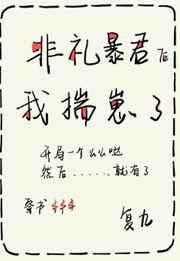 非礼暴君后
我揣崽了
开局一个么么哒
然后......就有了
祭书
复九